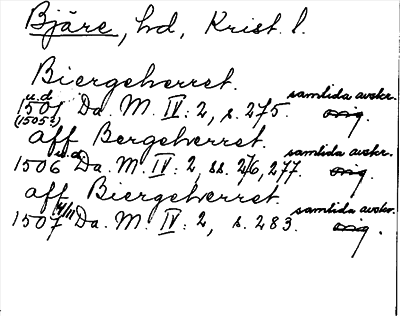 Bjäre, hd, Krist. l.
Biergeherret.
1501 u.d. (1505?) Da. M. IV: 2, s. 275. samtida avskr. orig.
aff Bergeherret.
1506 u.d. Da. M. IV: 2, ss. 276, 277. samtida avskr. orig.
aff Biergeherret
1507 14/11 Da. M. IV: 2, s. 283. samtida avskr. orig.